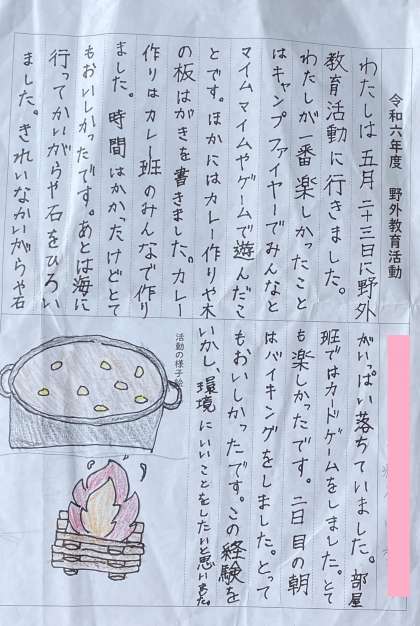 令和六年度　野外教育活動
わたしは五月二十三日に野外
教育活動に行きました。
わたしが一番楽しかったこと
はキャンプファイヤーでみんなと
マイムマイムやゲームで遊んだこ
とです。ほかにはカレー作りや木
の板はがきを書きました。カレー
作りはカレー班のみんなで作り
ました。時間はかかったけどとて
もおいしかったです。あとは海に
行ってかいがらや石をひろい
ました。きれいなかいがらや石
がいっぱい落ちていました。部屋
班ではカードゲームをしました。とて
も楽しかったです。二日目の朝
はバイキングをしました。とって
もおいしかったです。この経験を
いかし、環境にいいことをしたいと思いました。
活動の様子絵